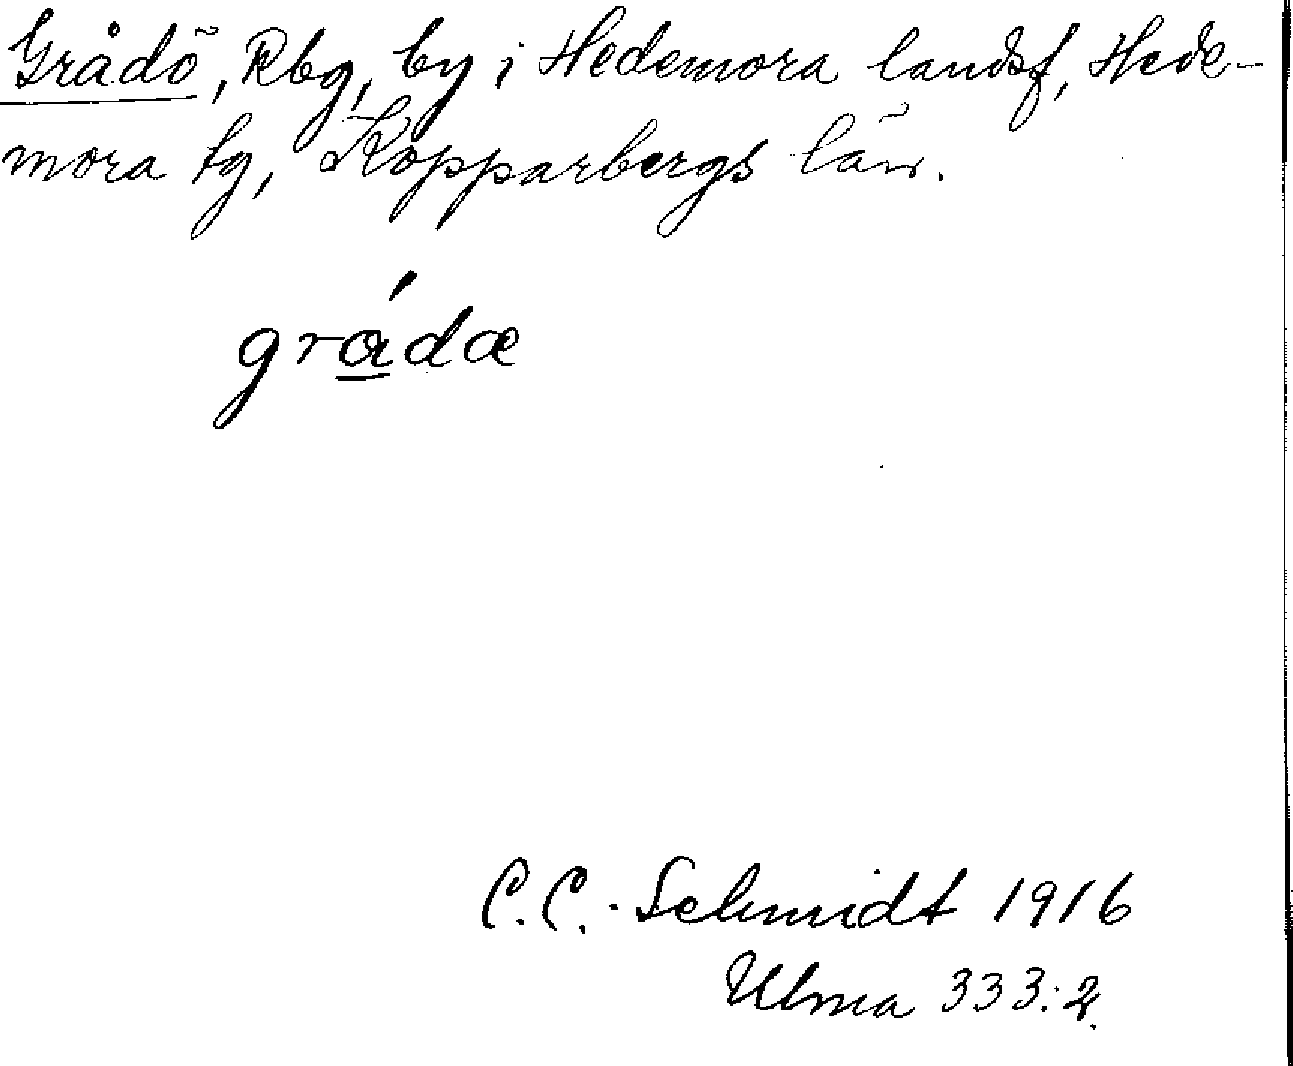 Grådö, Rbg, by i Hedemora landsf, Hede-
mora tg, Kopparbergs län.
grådæ
C. C. Schmidt 1916
Ulma 333:2.